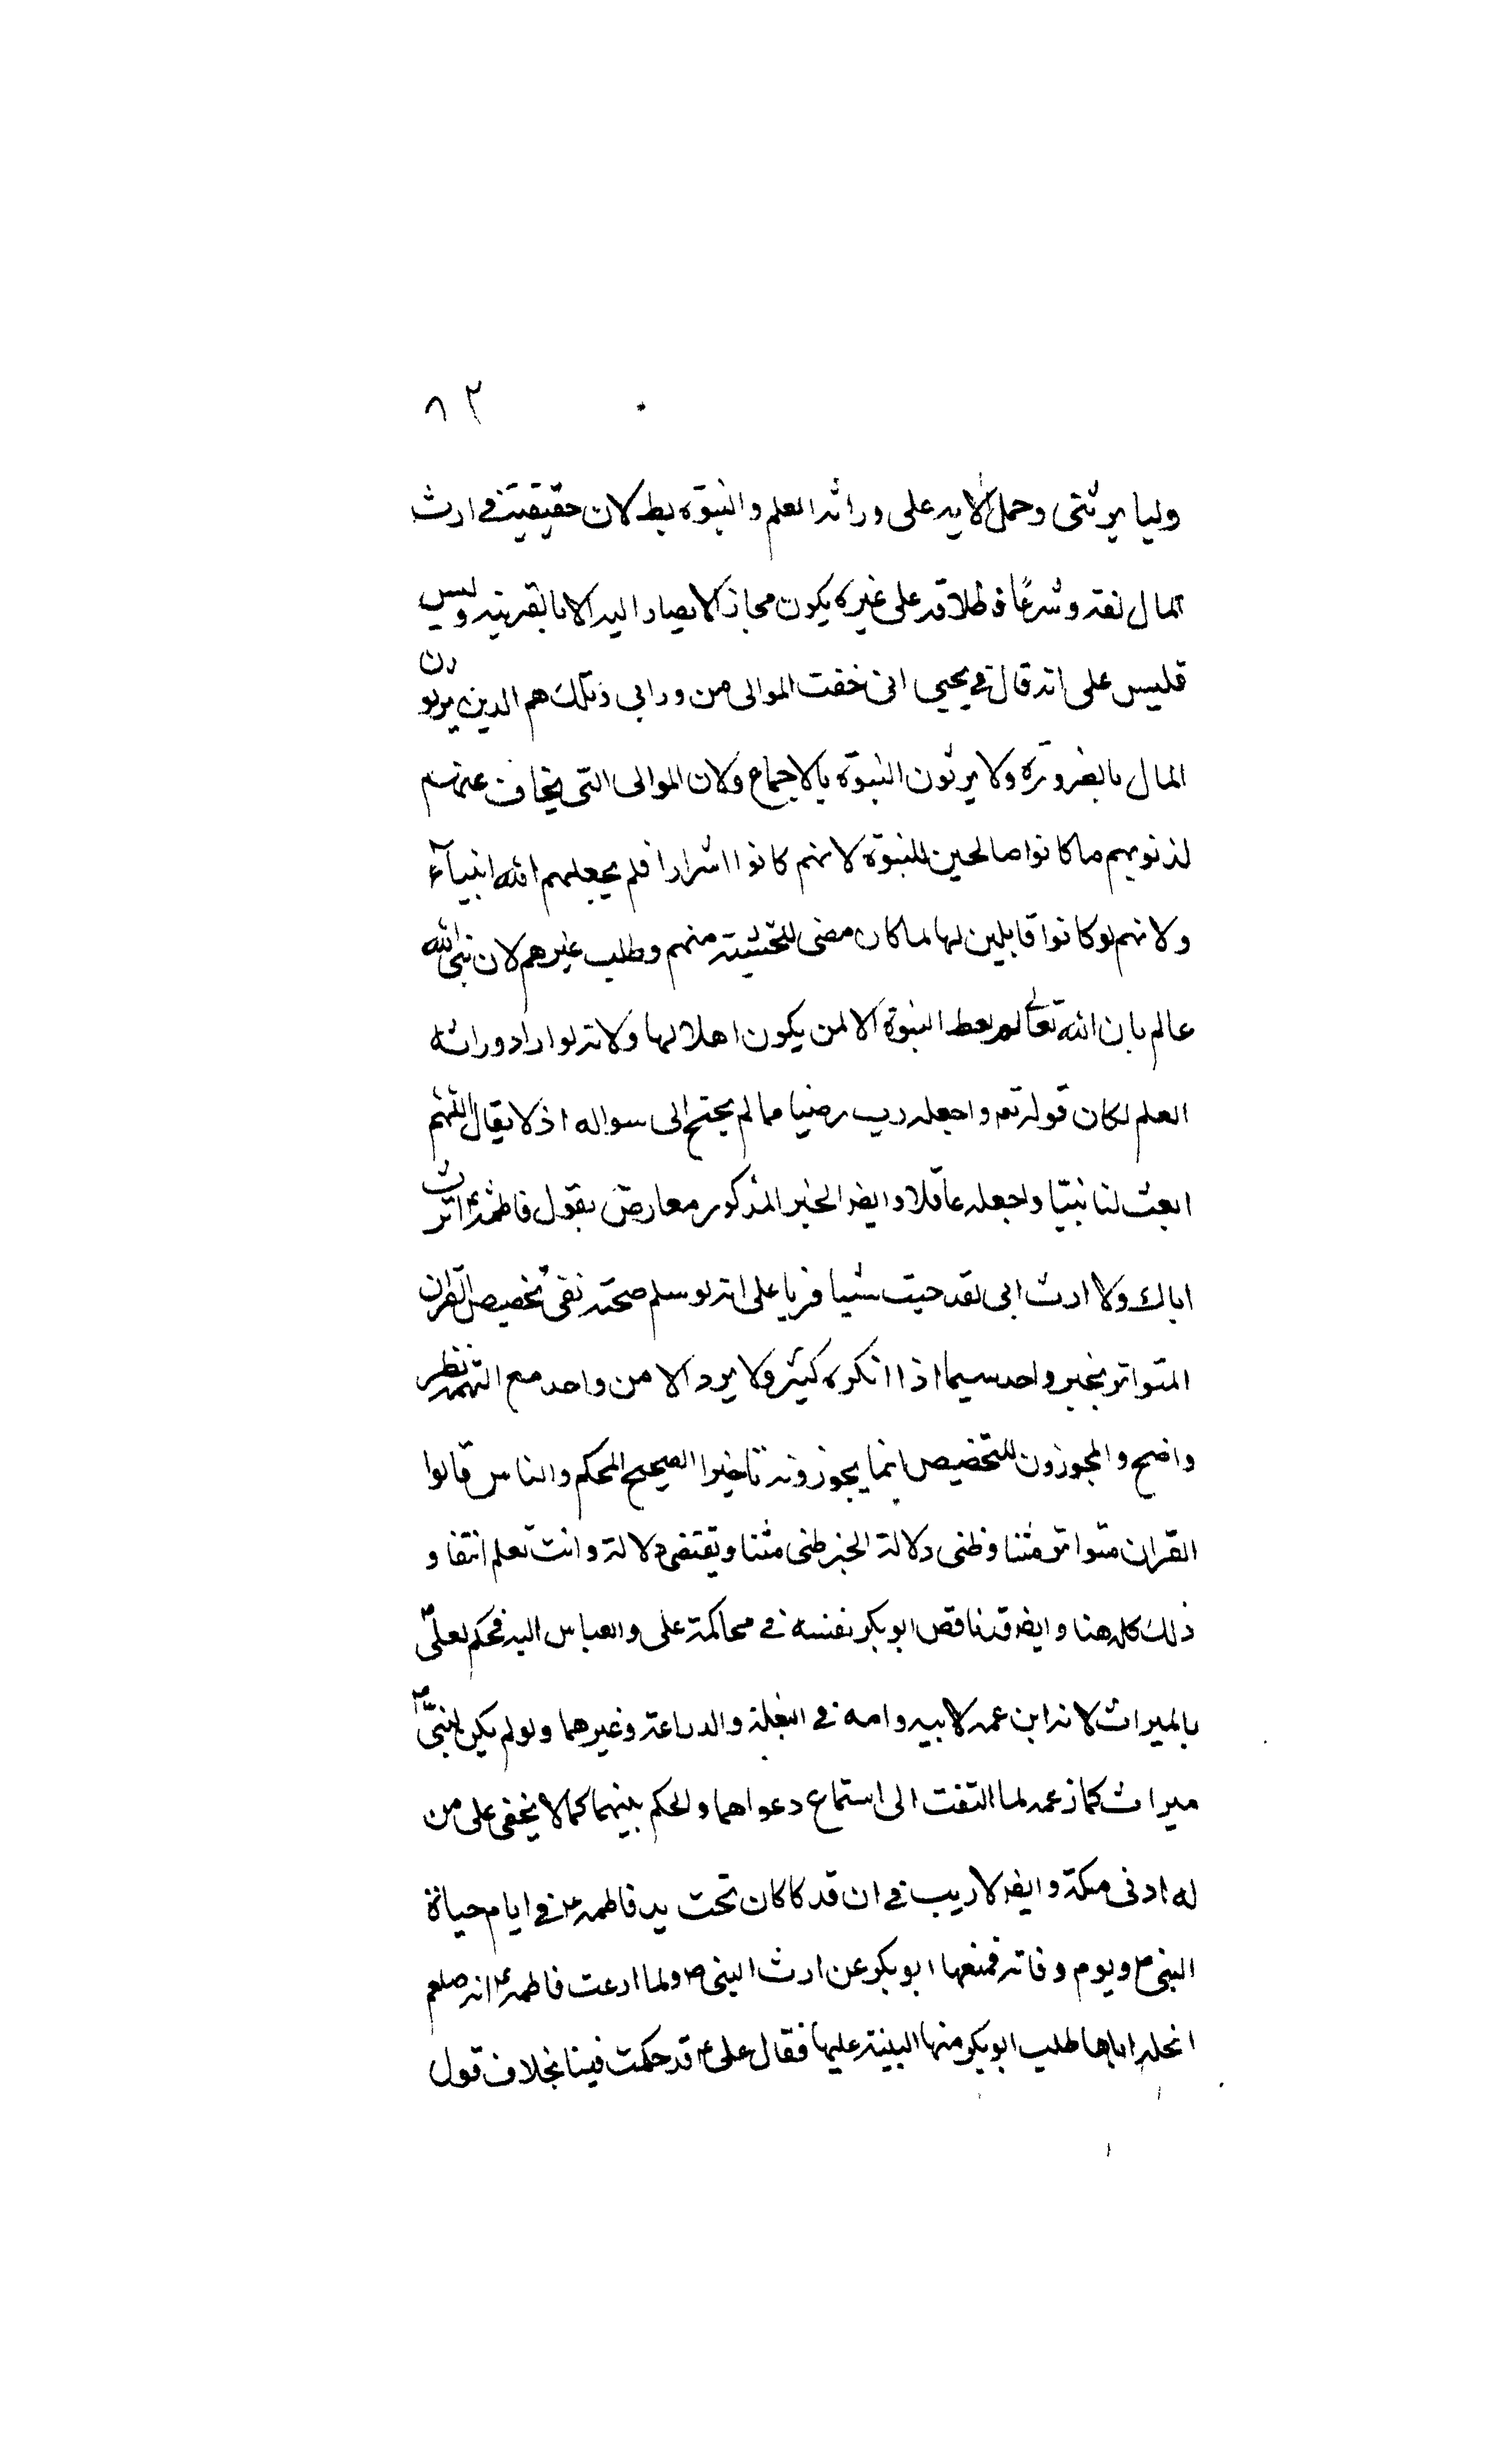 ٨٢
وليا يرثنى وحمل الايه على وراثه العلم والنبوّة بط لان حقيقته فى ارث
المال لغة وشرعًا فاطلاقه على غيره يكون مجازا لا يصار اليه الا بالقرينه وليس
فليس على انه قال فى يحيى انى خفت الموالى من ورابى وتلك هم الذين يرثون
المال بالضرورة ولا يرثون النبوّة بالاجماع ولان الموالى التى يخاف عنهم
لذنوبهم ما كانوا صالحين للنبوّة لانهم كانوا اشرارا فلم يجعلهم الله انبيآء
ولانهم لو كانوا قابلين لها لما كان معنى للخشية منهم وطلب غيرهم لان نبى الله
عالم بان الله تعالى لم يعط النبوة الا لمن يكون اهلا لها ولانه لو اراد وراثه
العلم لكان قوله تعم واجعله رب رضيا مما لم يحتج الى سواله اذ لا يقال اللّهم
ابعث لنا نبيّا واجعله عاقلا وايضا الخبر المذكور معارض بقول فاطمة ء اترث
اباك ولا ارث ابى لقد جئت شيا فريا على انه لو سلم صحته نفى تخصيص القران
المتواتر بخبر واحد سيما اذا انكره كثير ولا يرد الا من واحد مع التهمة نظر
واضح والمجوزون للتخصيص انما يجوزونه الصحيح المحكم والناس قالوا
القران متواتر متنا وظنى دلالة الخبر ظنى متنا ويقتضى دلالة وانت تعلم انتفاو
ذلك كله هنا وايضا قد ناقض ابو بكر نفسه فى محاكمة على والعباس اليه فحكم لعلىّ
بالميراث لانه ابن عمه لابيه وامه فى البغلة والدراعة وغيرهما ولو لم يكن لنبىّ ص
ميراث كما زعمه لما التفت الى استماع دعواهما والحكم بينهما كما لا يخفى على من
له ادنى مسكة وايضا لا ريب فى ان فدكا كان تحت يد فاطمه ع فى ايام حياة
النبى ص ويوم وفاته فمنعها ابو بكر عن ارث النبى ص ولما ادعت فاطمه ع انه صلعم
انحله اياها طلب ابو بكر منها البينة عليها فقال على ع قد حكمت فينا بخلاف قول